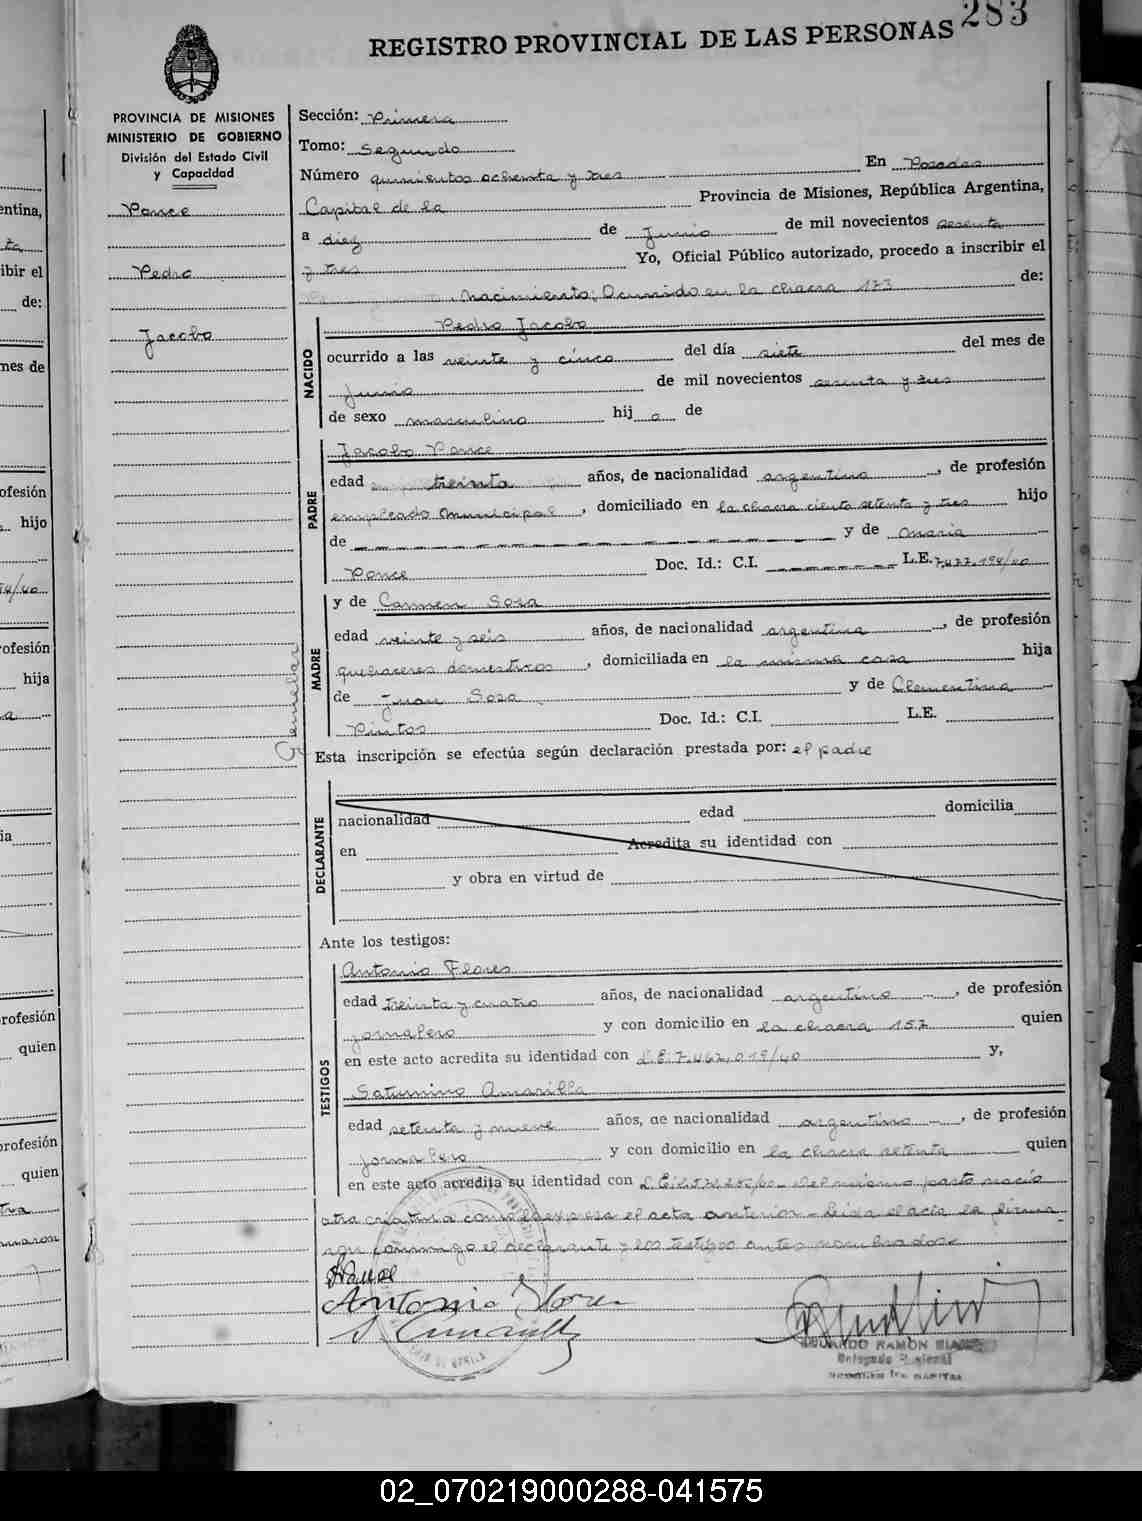 283
REGISTRO PROVINCIAL DE LAS PERSONAS
PROVINCIA DE MISIONES
MINISTERIO DE GOBIERNO
División del Estado Civil
y Capacidad
Ponce
Pedro
Jacobo
Gemelar
Sección: Primera
Tomo: Segundo
Número quinientos ochenta y tres En Posadas
Capital de la Provincia de Misiones, República Argentina,
a diez de Junio de mil novecientos sesenta
y tres Yo, Oficial Público autorizado, procedo a inscribir el
nacimiento; Ocurrido en la chacra 173 de:
NACIDO
Pedro Jacobo
ocurrido a las veinte y cinco del día siete del mes de
Junio de mil novecientos sesenta y tres
de sexo masculino hij o de
PADRE
Jacobo Ponce
edad treinta años, de nacionalidad argentino, de profesión
empleado municipal, domiciliado en la chacra ciento setenta y tres hijo
de y de Maria
Ponce Doc. Id.: C.I. L.E. 7.477.194/40
MADRE
y de Carmen Sosa
edad veinte y seis años, de nacionalidad argentina, de profesión
quehaceres domesticos, domiciliada en la misma casa hija
de Juan Sosa y de Clementina
Pintos Doc. Id.: C.I. L.E.
Esta inscripción se efectúa según declaración prestada por: el padre
DECLARANTE
nacionalidad edad domicilia
en Acredita su identidad con
y obra en virtud de
Ante los testigos:
TESTIGOS
Antonio Flores
edad treinta y cuatro años, de nacionalidad argentino, de profesión
jornalero y con domicilio en la chacra 157 quien
en este acto acredita su identidad con L.E. 7.462.019/40 y,
Saturnino Amarilla
edad setenta y nueve años, de nacionalidad argentino, de profesión
jornalero y con domicilio en la chacra setenta quien
en este acto acredita su identidad con Del mismo parto nació
otra criatura como lo expresa el acta anterior - Leida el acta la firma
ron conmigo el declarante y los testigos antes nombrados
Antonio Flores
S. Amarilla
EDUARDO RAMON
Delegado Regional
02_070219000288-041575